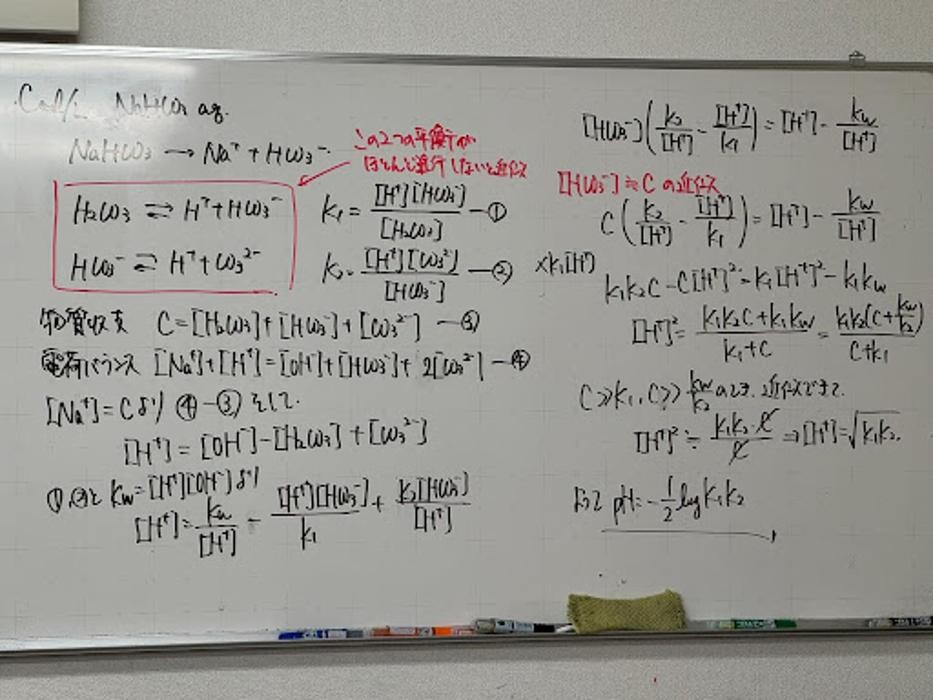 C mol/L NaHCO₃ aq.
NaHCO₃ → Na⁺ + HCO₃⁻
この2つの平衡がほとんど進行しないと近似
H₂CO₃ ⇄ H⁺ + HCO₃⁻
K₁ = [H⁺][HCO₃⁻]/[H₂CO₃] —①
HCO₃⁻ ⇄ H⁺ + CO₃²⁻
K₂ = [H⁺][CO₃²⁻]/[HCO₃⁻] —②
物質収支 C = [H₂CO₃] + [HCO₃⁻] + [CO₃²⁻] —③
電荷バランス [Na⁺] + [H⁺] = [OH⁻] + [HCO₃⁻] + 2[CO₃²⁻] —④
[Na⁺] = C より ④－③ をして.
[H⁺] = [OH⁻] − [H₂CO₃] + [CO₃²⁻]
①,②と Kw = [H⁺][OH⁻] より
[H⁺] = Kw/[H⁺] − [H⁺][HCO₃⁻]/K₁ + K₂[HCO₃⁻]/[H⁺]
[HCO₃⁻](K₂/[H⁺] − [H⁺]/K₁) = [H⁺] − Kw/[H⁺]
[HCO₃⁻] ≒ C の近似
C(K₂/[H⁺] − [H⁺]/K₁) = [H⁺] − Kw/[H⁺]
×K₁[H⁺]
K₁K₂C − C[H⁺]² = K₁[H⁺]² − K₁Kw
[H⁺]² = (K₁K₂C + K₁Kw)/(K₁ + C) = K₁K₂(C + Kw/K₂)/(C + K₁)
C ≫ K₁, C ≫ Kw/K₂ のとき. 近似できて.
[H⁺]² ≒ K₁K₂·C/C ⇒ [H⁺] = √K₁K₂.
よって pH = −1/2 log K₁K₂